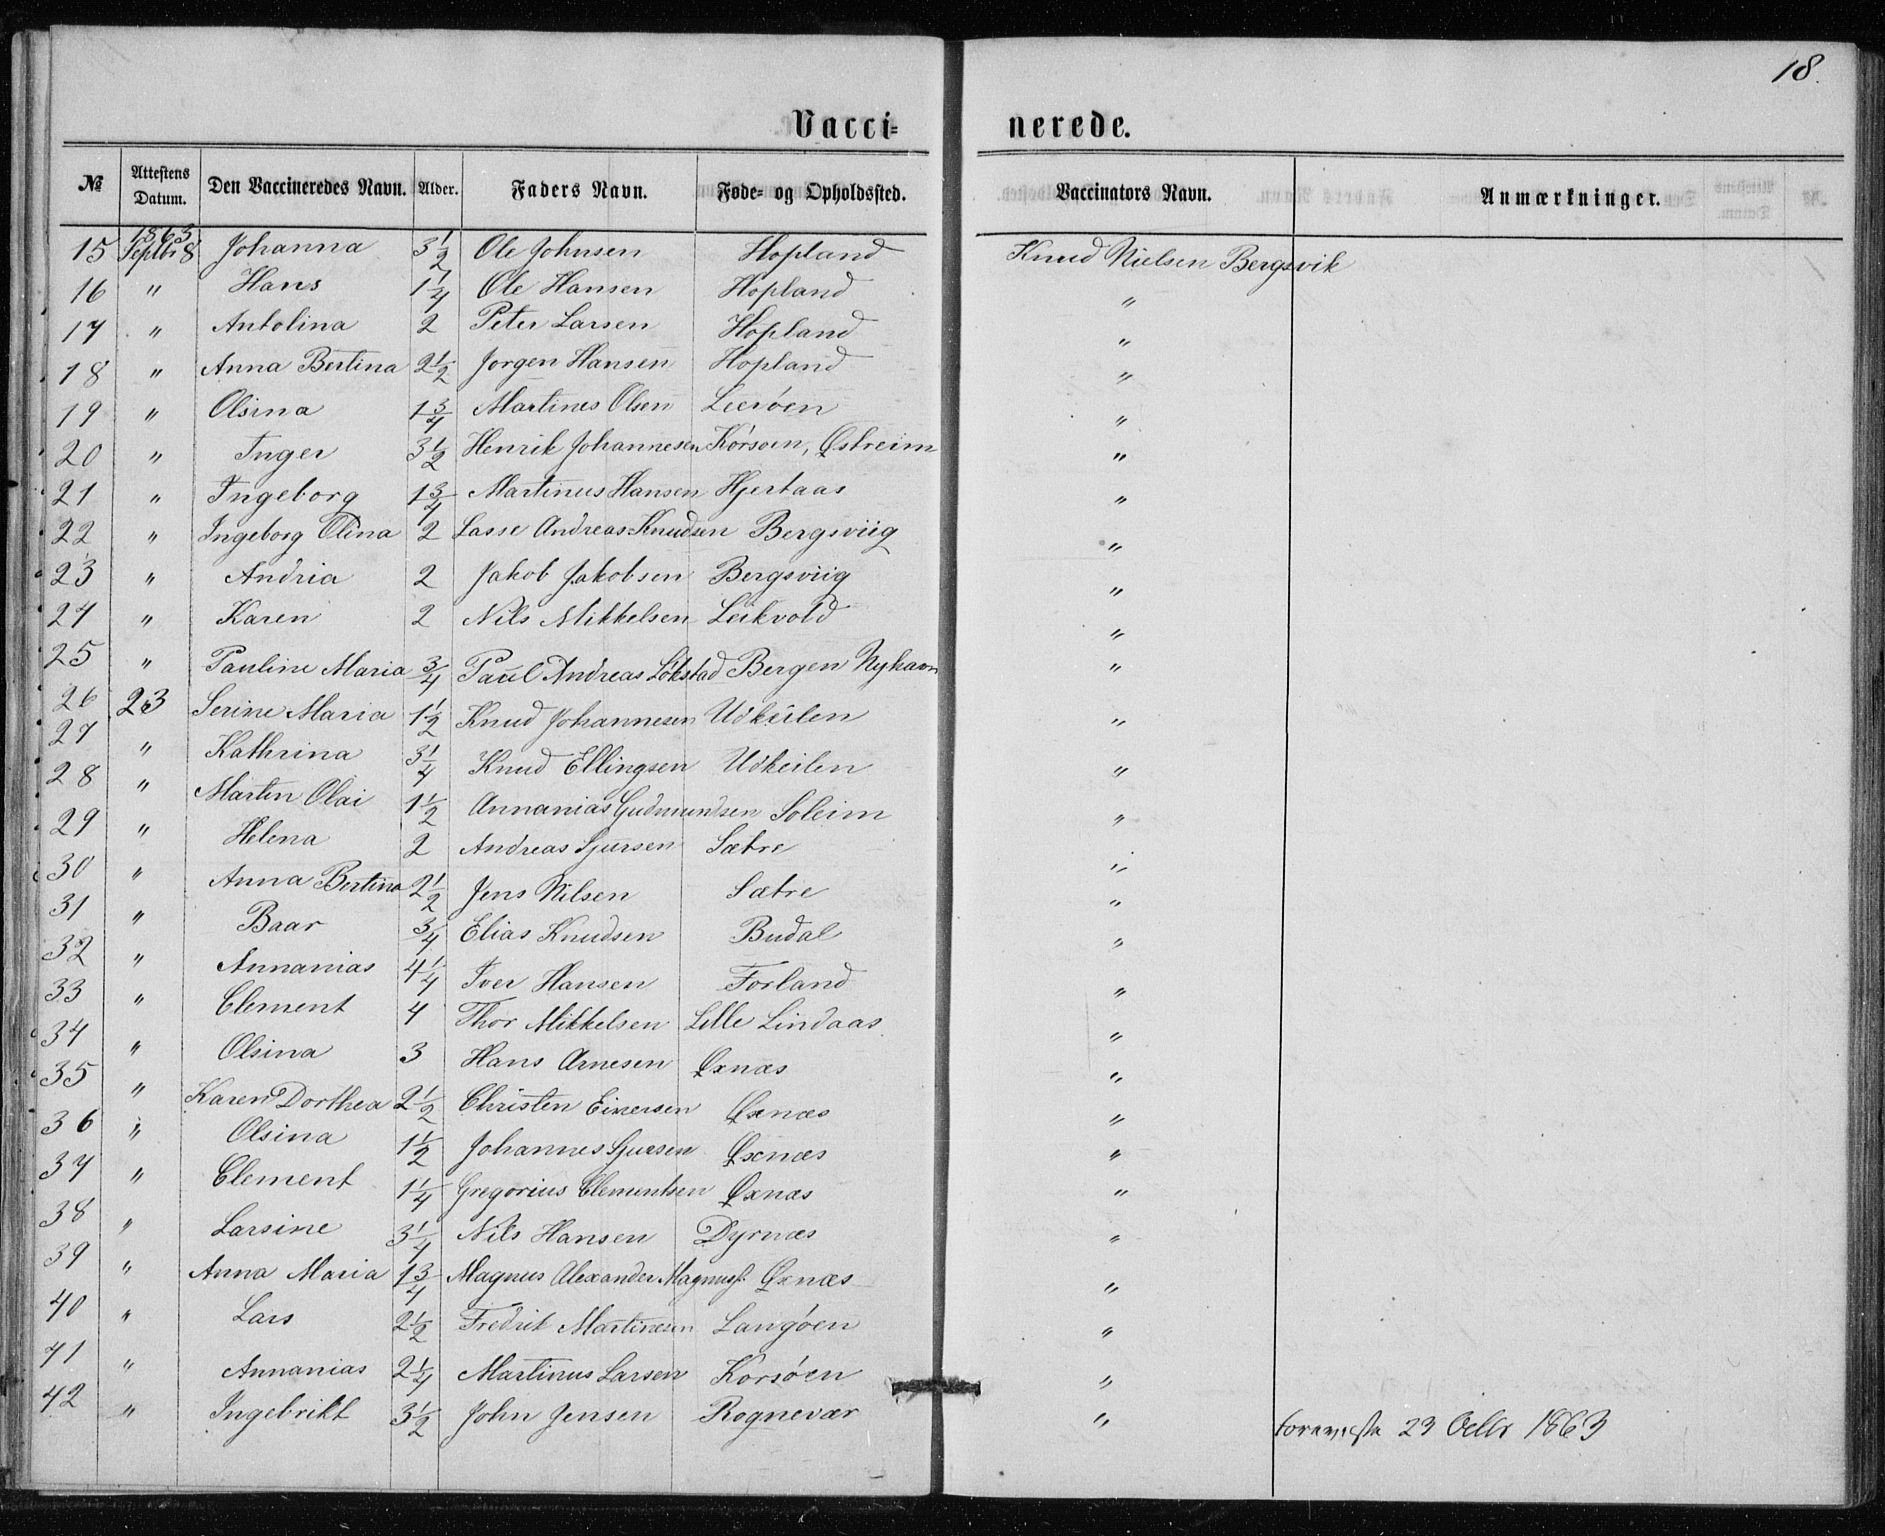 18.
Vacci= nerede.
№ Attestens Datum. Den Vaccineredes Navn. Alder. Faders Navn. Føde- og Opholdssted. Vaccinators Navn. Anmærkninger.
1863
15 Septbr 8 Johanna 3 1/2 Ole Johnsen Hopland Knud Nielsen Bergsvik
16 " Hans 1 1/4 Ole Hansen Hopland "
17 " Antolina 2 Peter Larsen Hopland "
18 " Anna Bertina 2 1/2 Jorgen Hansen Hopland "
19 " Olsina 1 3/4 Martines Olsen Leeröen "
20 " Inger 3 1/2 Henrik Johannesen Körsoen, Østreim "
21 " Ingeborg 1 3/4 Martinus Hansen Hjertaas "
22 " Ingeborg Olina 2 Lasse Andreas Knudsen Bergsviig "
23 " Andria 2 Jakob Jakobsen Bergsviig "
24 " Karen 2 Nils Mikkelsen Leikvold "
25 " Pauline Maria 3/4 Paul Andreas Lökstad Bergen Nyhavn "
26 23 Serine Maria 1 1/2 Knud Johannesen Udkeilen "
27 " Kathrina 3 1/4 Knud Ellingsen Udkeilen "
28 " Martin Olai 1 1/2 Annanias Gudmundsen Soleim "
29 " Helena 2 Andreas Sjursen Sætre "
30 " Anna Bertina 2 1/2 Jens Nilsen Sætre "
31 " Baar 3/4 Elias Knudsen Budal "
32 " Annanias 4 1/4 Iver Hansen Forland "
33 " Clement 4 Thor Mikkelsen Lille Lindaas "
34 " Olsina 3 Hans Arnesen Øxnæs "
35 " Karen Dorthea 2 1/2 Christen Einersen Øxnæs "
36 " Olsina 1 1/2 Johannes Sjursen Øxnæs "
37 " Clement 1 1/4 Gregorius Clementsen Øxnæs "
38 " Larsine 3 1/4 Nils Hansen Dyrnæs "
39 " Anna Maria 1 3/4 Magnus Alexander Magnuss. Øxnæs "
40 " Lars 2 1/2 Fredrik Martinesen Langöen "
41 " Annanias 2 1/4 Martinus Larsen Korsöen "
42 " Ingebrikt 3 1/2 John Jensen Rognevær " foreviste 23 Octbr 1863